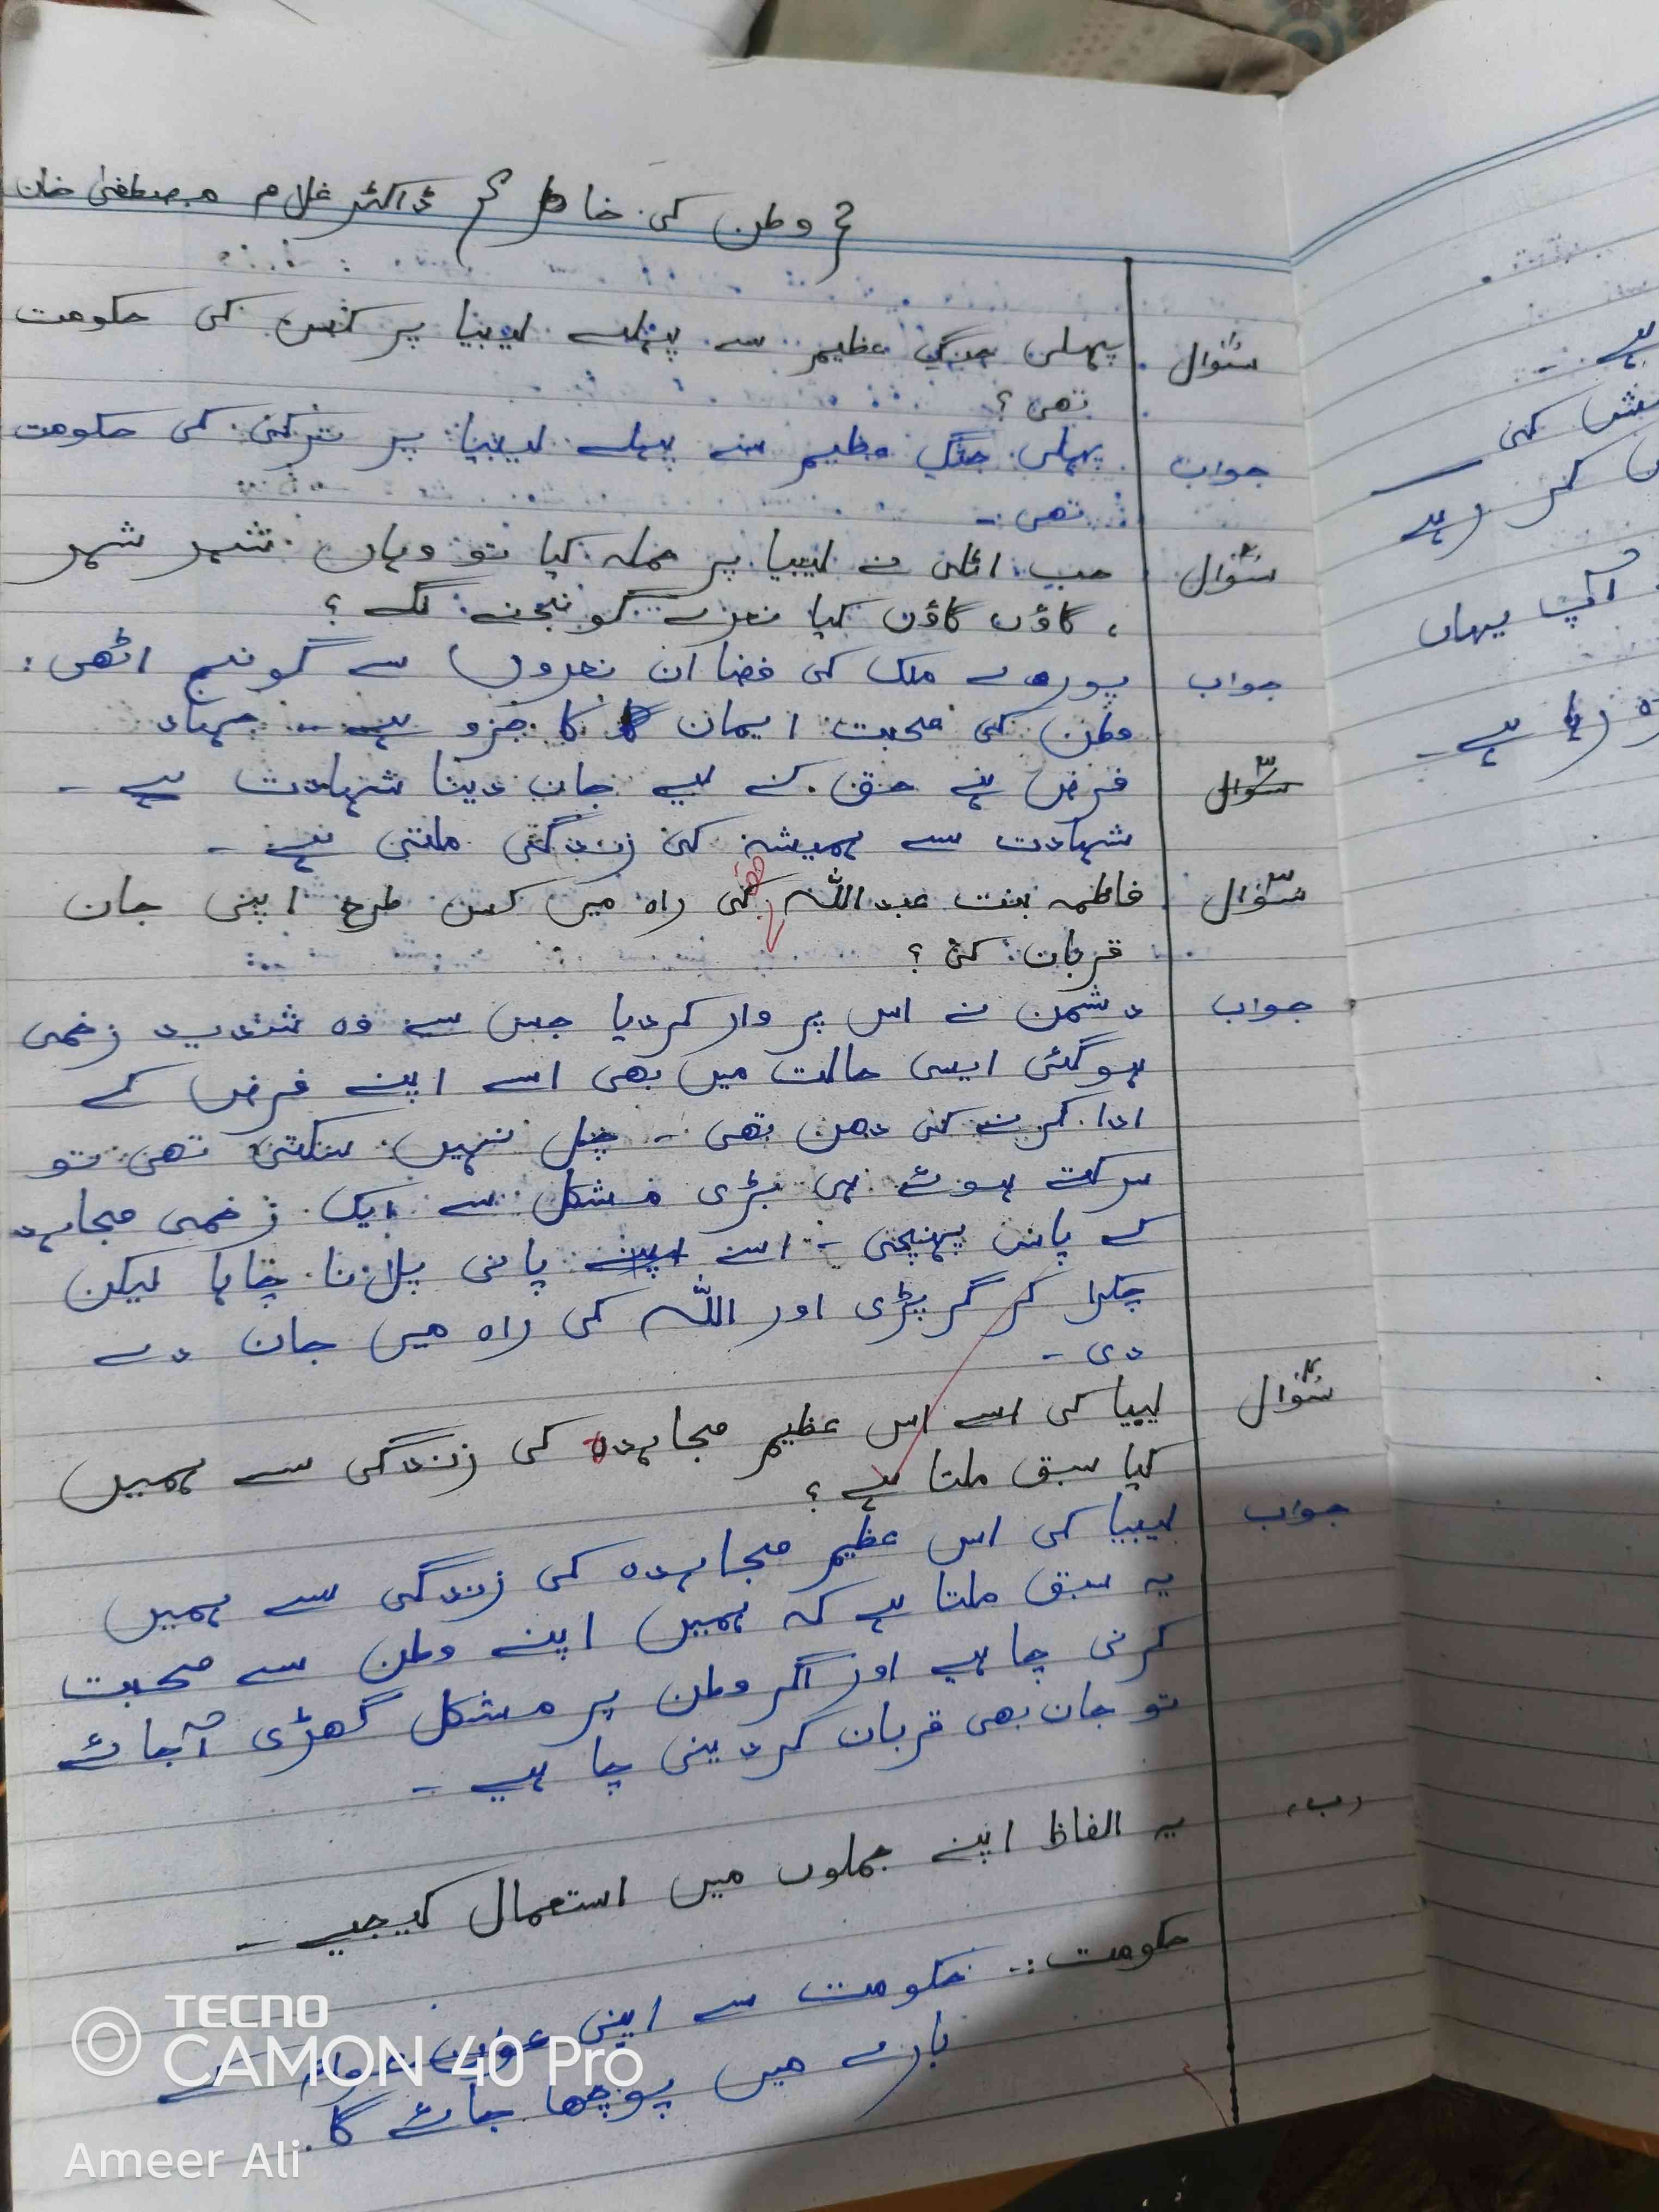 وطن کی خاطر ڈاکٹر غلام مصطفیٰ خان
سوال ۱ پہلی جنگ عظیم سے پہلے لیبیا پر کس کی حکومت
تھی ؟
جواب پہلی جنگ عظیم سے پہلے لیبیا پر ترکی کی حکومت
تھی ۔
سوال ۲ جب اٹلی نے لیبیا پر حملہ کیا تو وہاں شہر شہر
، گاؤں گاؤں کیا نعرے گونجنے لگے ؟
جواب پورے ملک کی فضا ان نعروں سے گونج اٹھی :
وطن کی محبت ایمان کا جزو ہے ۔ جہاد
سوال ۳ فرض ہے حق کے لیے جان دینا شہادت ہے ۔
شہادت سے ہمیشہ کی زندگی ملتی ہے ۔
سوال ۳ فاطمہ بنت عبداللہ کی راہ میں کس طرح اپنی جان
قربان کی ؟
جواب دشمن نے اس پر وار کردیا جس سے وہ شدید زخمی
ہوگئی ایسی حالت میں بھی اسے اپنے فرض کے
ادا کرنے کی دھن تھی ۔ چل نہیں سکتی تھی تو
سرکتے ہوئے ہی بڑی مشکل سے ایک زخمی مجاہد
کے پاس پہنچی ۔ اسے اپنے پانی پلانا چاہا لیکن
چکرا کر گر پڑی اور اللہ کی راہ میں جان دے
دی ۔
سوال ۴ لیبیا کی اسے اس عظیم مجاہدہ کی زندگی سے ہمیں
کیا سبق ملتا ہے ؟
جواب لیبیا کی اس عظیم مجاہدہ کی زندگی سے ہمیں
یہ سبق ملتا ہے کہ ہمیں اپنے وطن سے محبت
کرنی چاہیے اور اگر وطن پر مشکل گھڑی آجائے
تو جان بھی قربان کردینی چاہیے ۔
(ب) یہ الفاظ اپنے جملوں میں استعمال کیجیے ۔
حکومت :۔ حکومت سے اپنی عوام کے
بارے میں پوچھا جائے گا ۔
ہے ۔
کر رہے
آپ یہاں
رہا ہے ۔
TECNO
CAMON 40 Pro
Ameer Ali